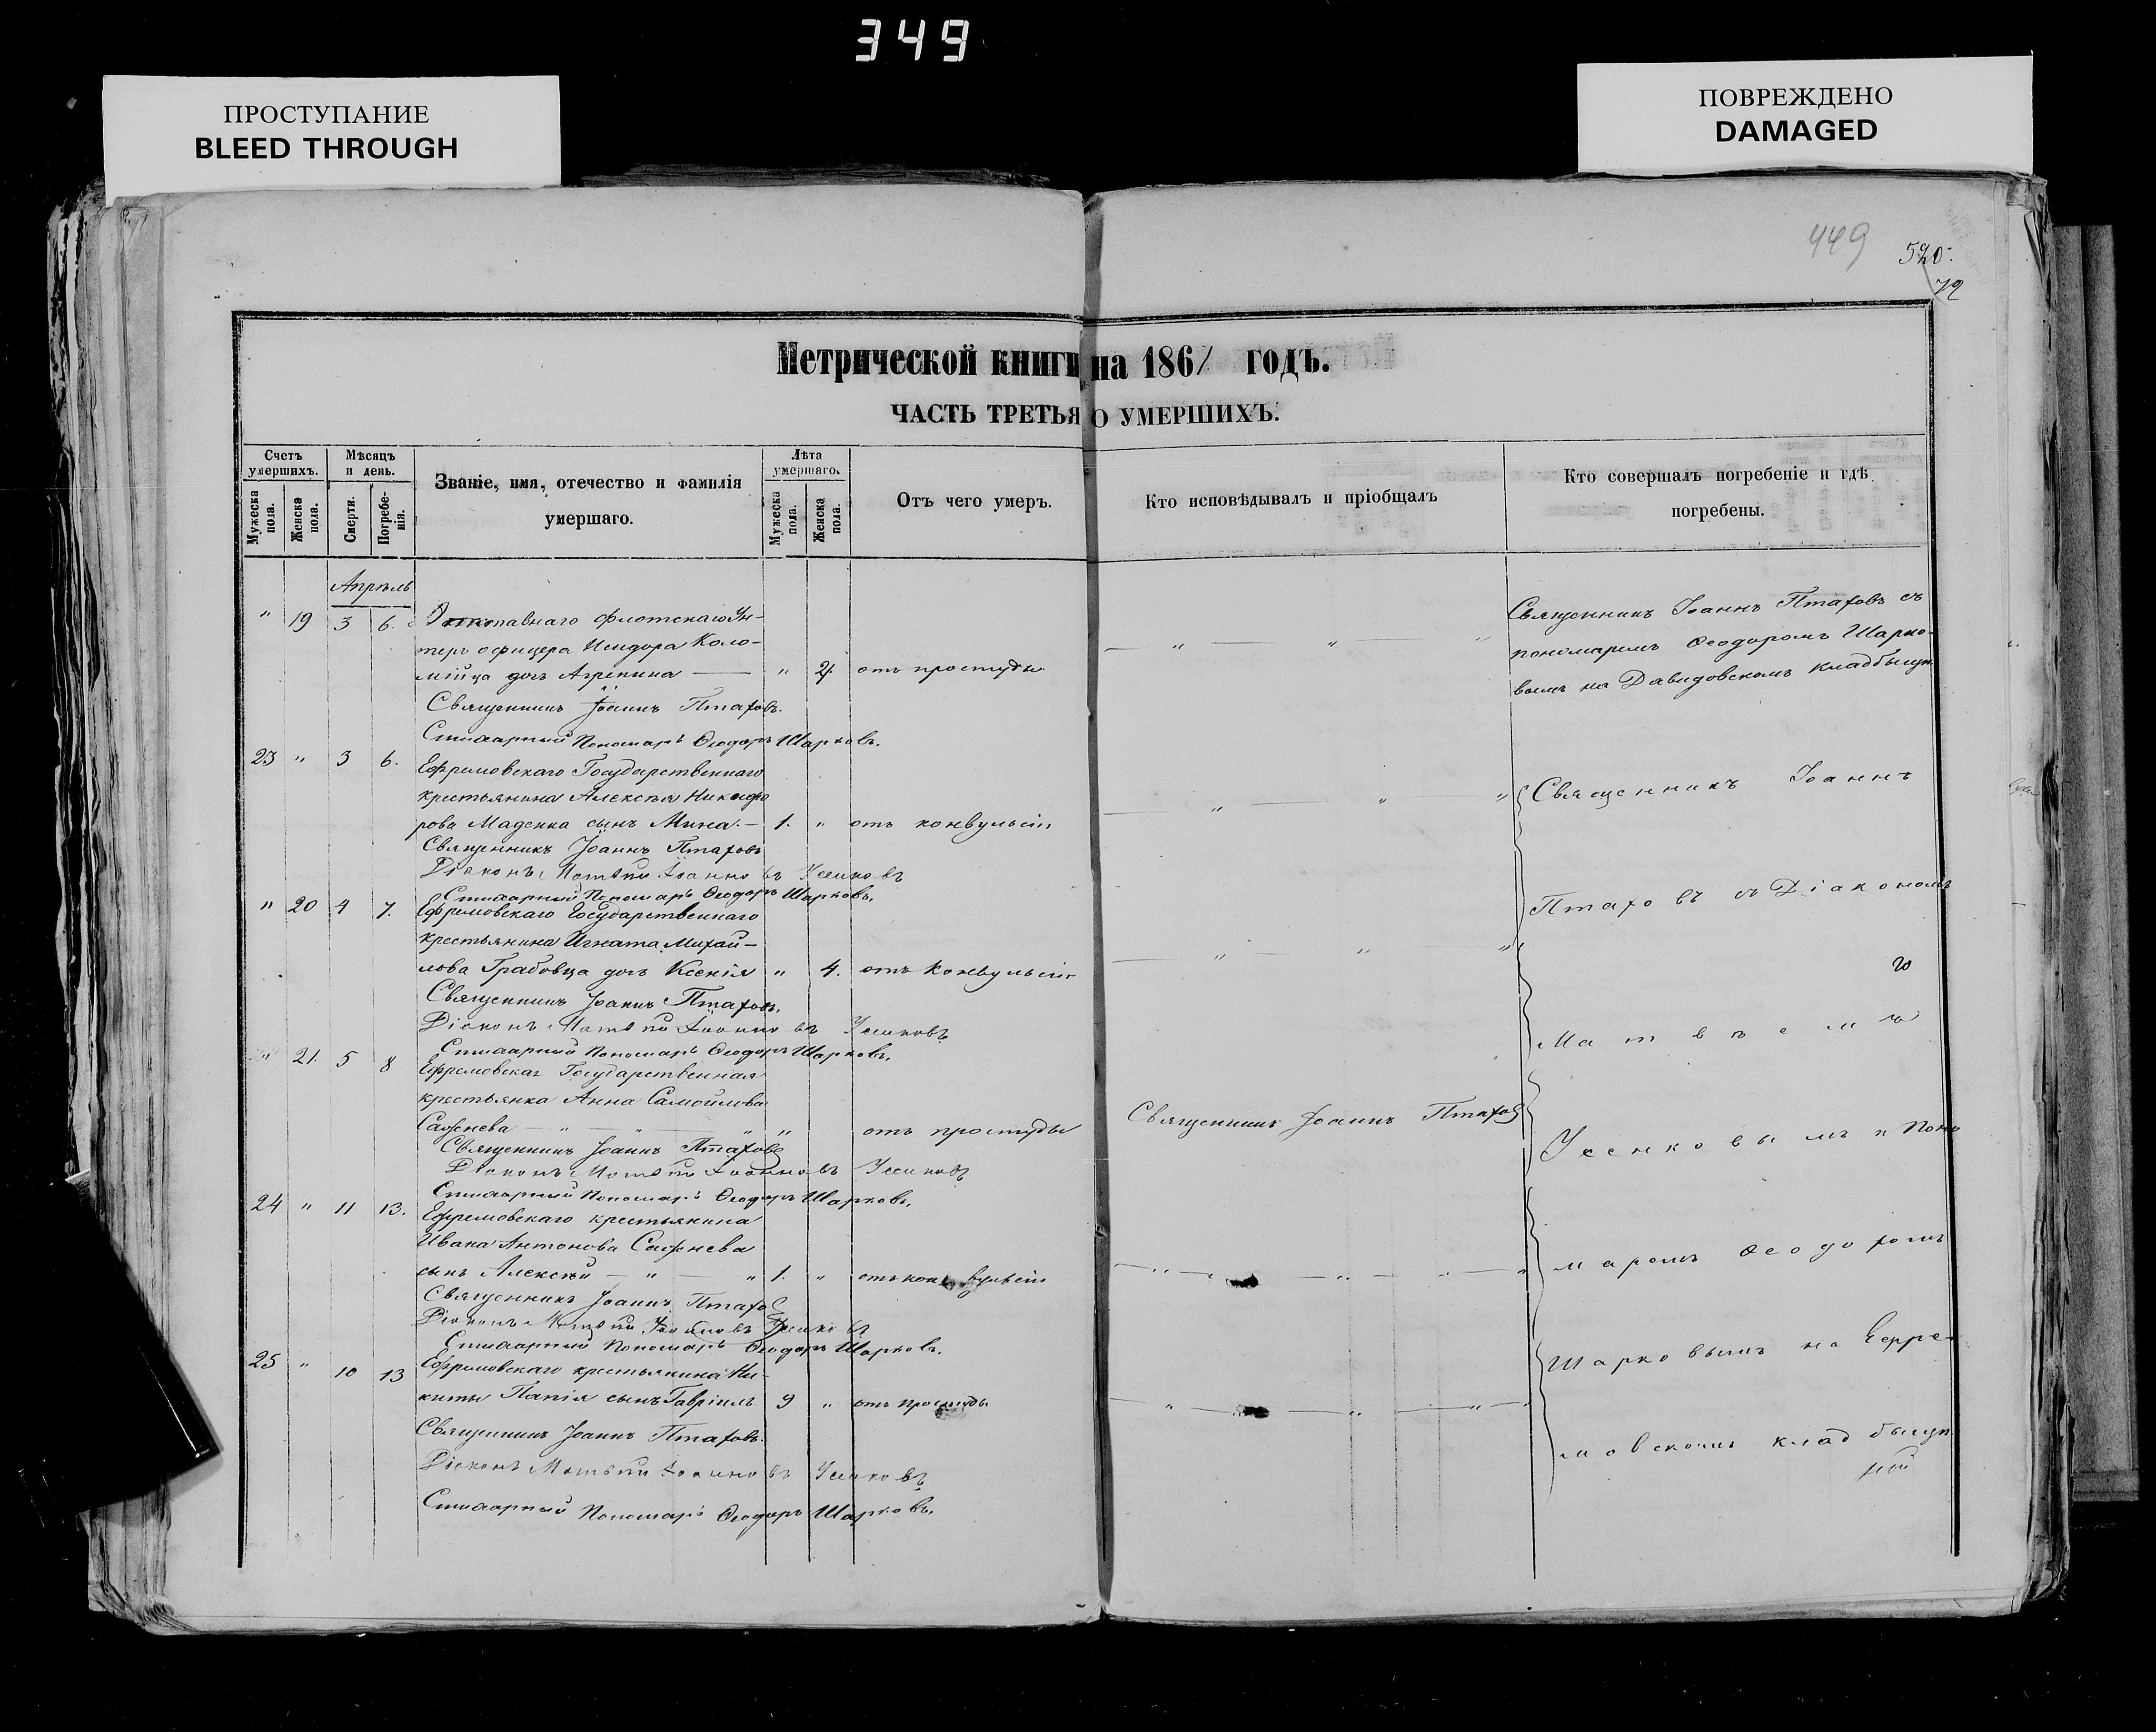 349
ПРОСТУПАНИЕ
BLEED THROUGH
ПОВРЕЖДЕНО
DAMAGED
449
520.
72
Метрической книги на 1861 годъ.
ЧАСТЬ ТРЕТЬЯ О УМЕРШИХЪ.
Счетъ умершихъ.
Мужеска пола.
Женска пола.
Мѣсяцъ и день.
Смерти.
Погребенія.
Званіе, имя, отечество и фамилія
умершаго.
Лѣта умершаго.
Мужеска пола.
Женска пола.
Отъ чего умеръ.
Кто исповѣдывалъ и пріобщалъ
Кто совершалъ погребеніе и гдѣ
погребены.
Апрѣль
" 19 3 6. Отставнаго флотскаго Ун-
теръ офицера Исидора Коло-
мійца дочь Агрепина — " 2. отъ простуды " " "
Священникъ Іоаннъ Птаховъ съ
пономаремъ Ѳеодоромъ Шарко-
вымъ на Давидовскомъ кладбищѣ
Священникъ Іоаннъ Птаховъ.
Стихарный Пономарь Ѳеодоръ Шарковъ.
23 " 3 6. Ефремовскаго Государственнаго
крестьянина Алексѣя Никифо
рова Маденка сынъ Мина. — 1. " отъ конвульсіи " " "
Священникъ Іоаннъ Птаховъ
Діаконъ Матвѣй Іоанновъ Усенковъ
Стихарный Пономарь Ѳеодоръ Шарковъ.
" 20 4 7. Ефремовскаго Государственнаго
крестьянина Игната Михай-
лова Грабовца дочь Ксенія " 4. отъ конвульсіи " " "
Священникъ Іоаннъ Птаховъ.
Діаконъ Матвѣй Іоанновъ Усенковъ
Стихарный Пономарь Ѳеодоръ Шарковъ.
" 21. 5 8 Ефремовская Государственная
крестьянка Анна Самойлова
Сафенева " " " " отъ простуды Священникъ Іоаннъ Птаховъ
Священникъ Іоаннъ Птаховъ
Діаконъ Матвѣй Іоанновъ Усенковъ
Стихарный Пономарь Ѳеодоръ Шарковъ.
24 " 11 13. Ефремовскаго крестьянина
Ивана Антонова Сафенева
сынъ Алексѣй — " — " 1. " отъ конвульсіи " " "
Священникъ Іоаннъ Птаховъ
Діаконъ Матвѣй Іоанновъ Усенковъ
Стихарный Пономарь Ѳеодоръ Шарковъ.
25 " 10 13 Ефремовскаго крестьянина Ни-
киты Папія сынъ Гавріилъ 9 " отъ простуды " " "
Священникъ Іоаннъ Птаховъ.
Діаконъ Матвѣй Іоанновъ Усенковъ
Стихарный Пономарь Ѳеодоръ Шарковъ.
Священникъ Іоаннъ
Птаховъ съ Діакономъ
Матвѣемъ
Усенковымъ и Поно
маремъ Ѳеодоромъ
Шарковымъ на Ефре-
мовскомъ кладбищѣ